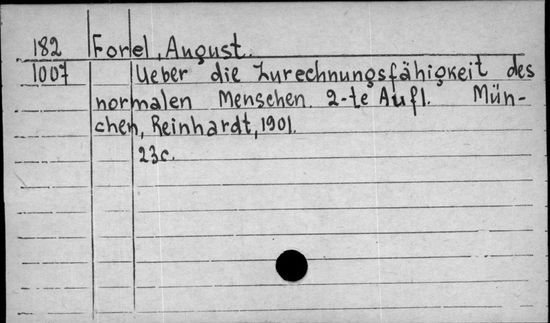 182 Forel, August.
1007 Ueber die Zurechnungsfähigkeit des
normalen Menschen. 2-te Aufl. Mün-
chen, Reinhardt, 1901.
23c.